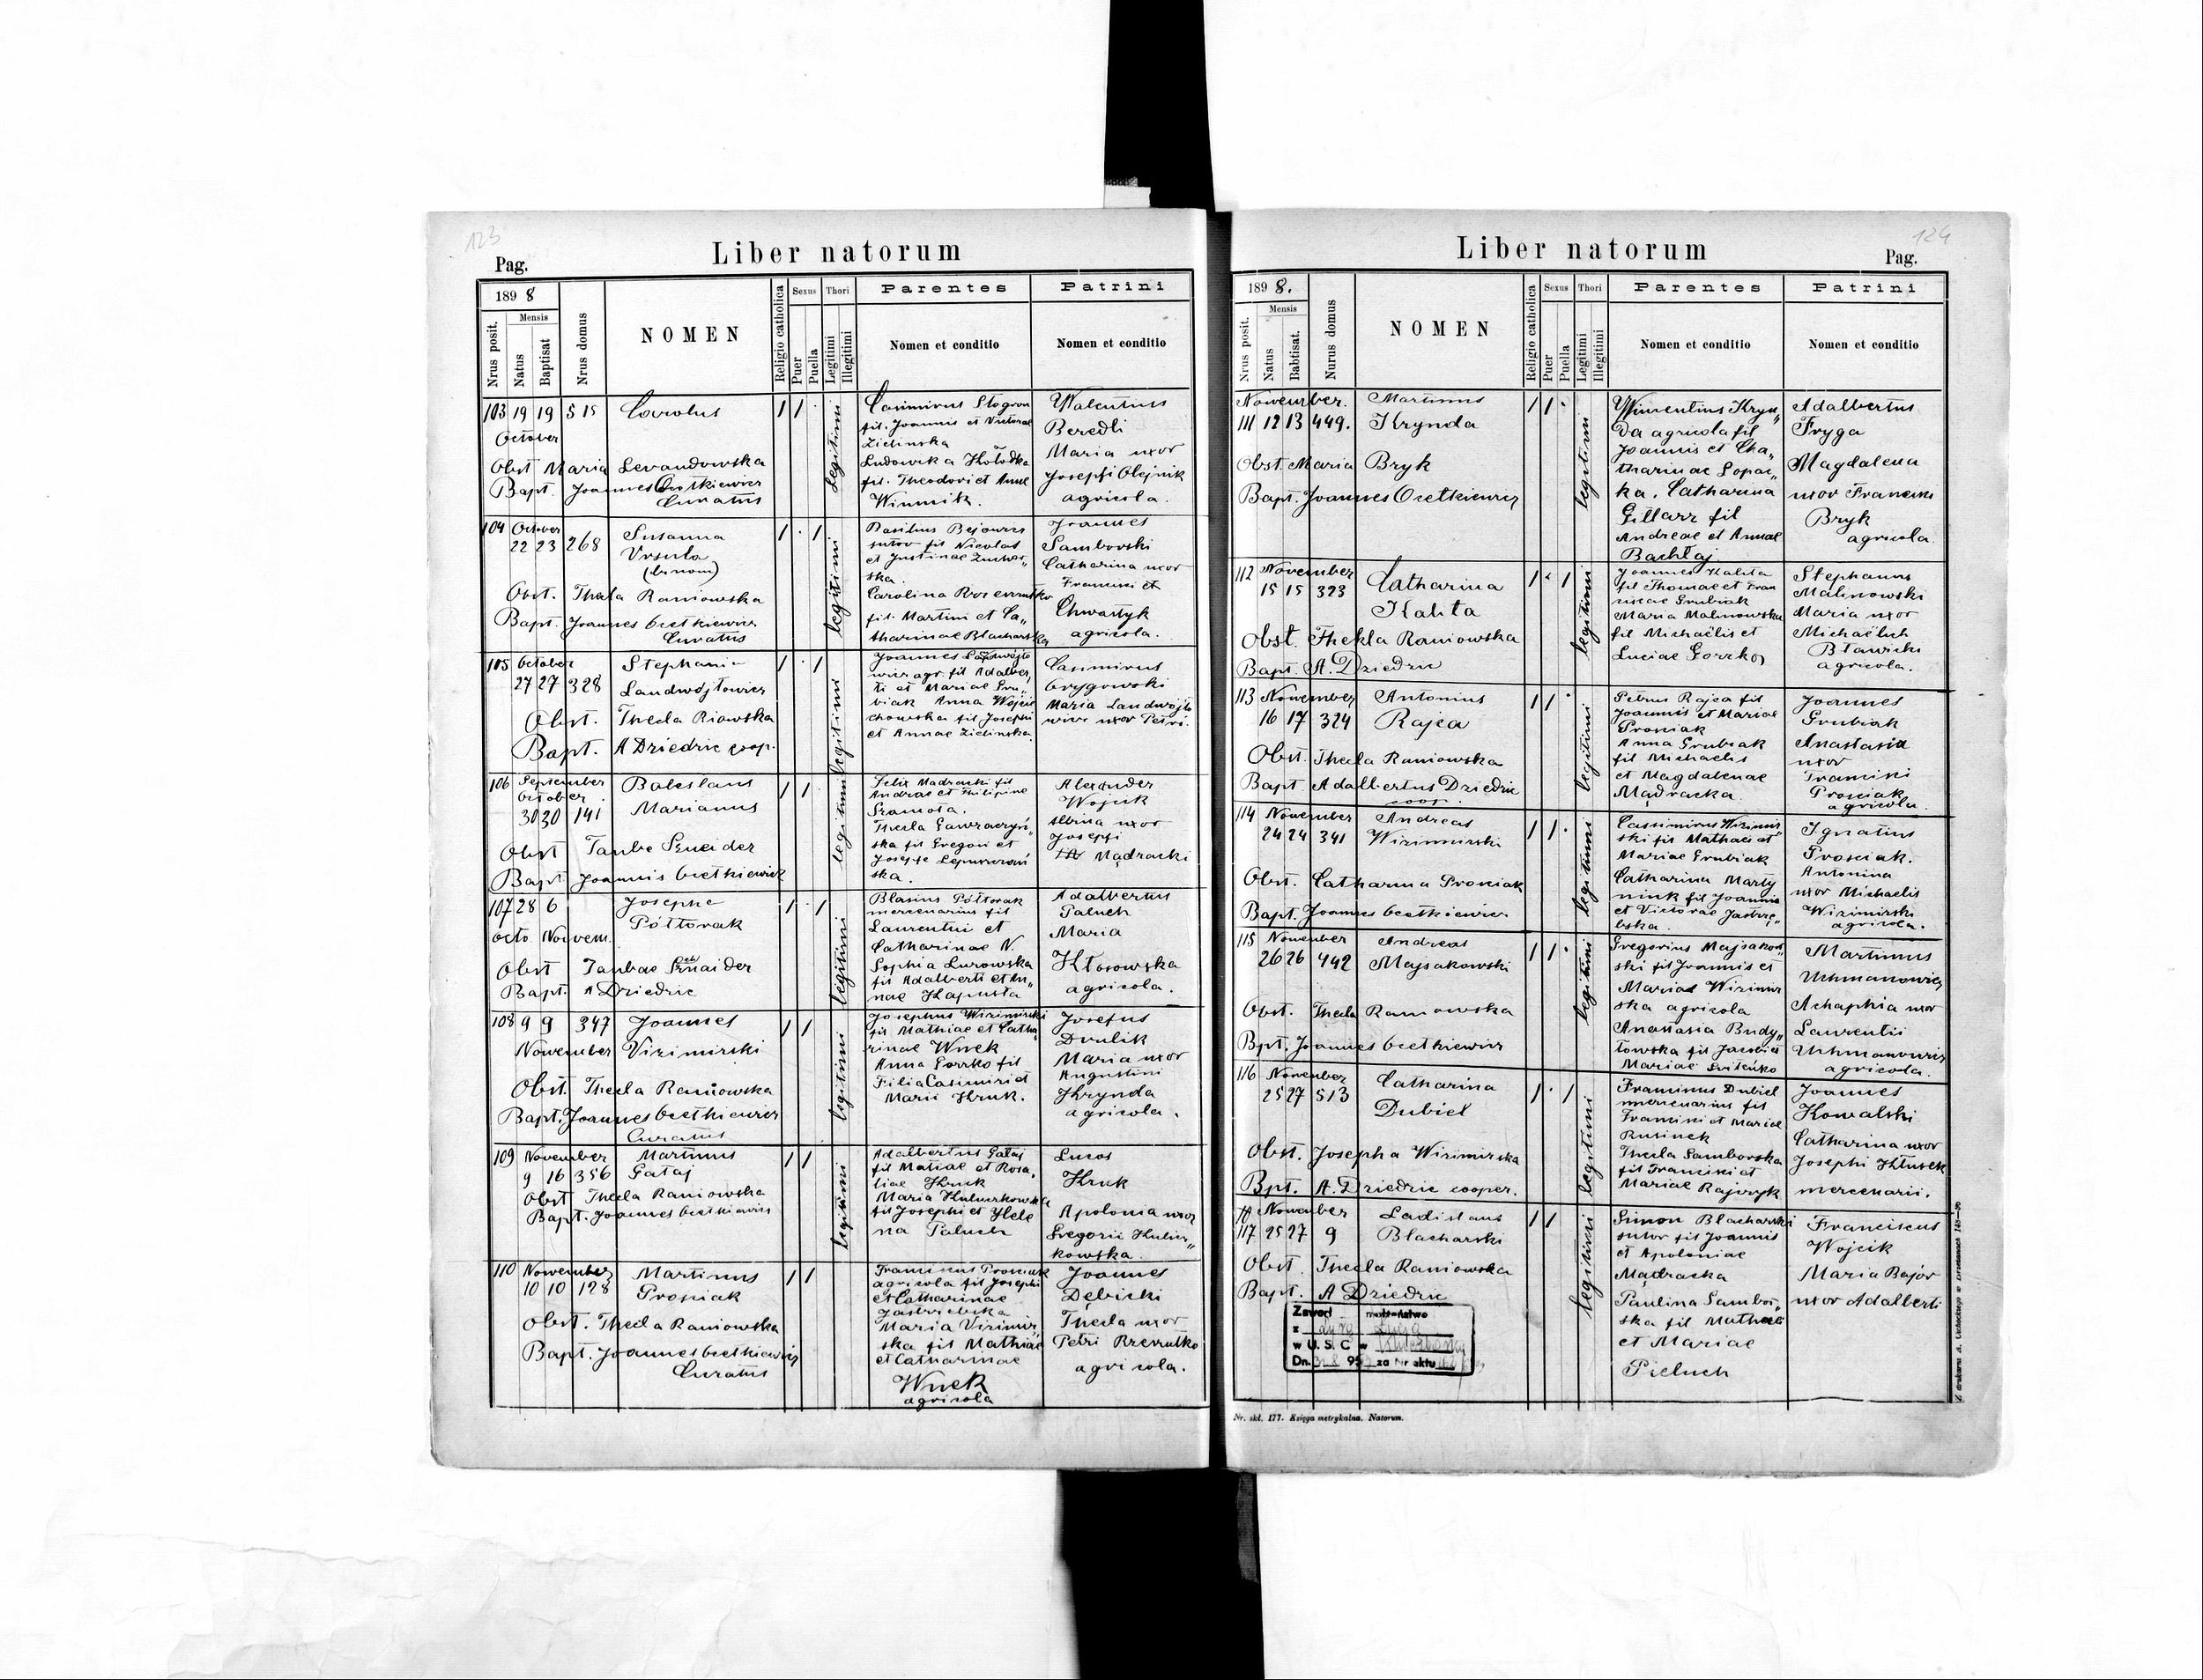 123
Liber natorum
Pag.
1898
Nrus posit.
Mensis
Natus
Baptisat
Nrus domus
NOMEN
Religio catholica
Sexus
Puer
Puella
Thori
Legitimi
Illegitimi
Parentes
Nomen et conditio
Patrini
Nomen et conditio
103 19 19 515 Carolus
October
Obst Maria Levandowska
Bapt. Joannes
Curatus
legitimi
Casimirus Stogron
fil. Joannis et Victoriae
Zielinska
Ludowika
fil. Theodori et Annae
Winnik.
Walentius
Beredli
Maria uxor
Josephi Olejnik
agricola.
104 October
22 23 268 Susanna
Ursula
(bi nom)
Obst. Thecla Raniowska
Bapt. Joannes
Curatus
legitimi
Basilius
sutor fil Nicolai
et Justinae
ska.
Carolina
fil. Martini et Ca„
tharinae Blacharska
Joannes
Samborski
Catharina uxor
Francisci et
Chwastyk
agricola.
105 October
27 27 328 Stephania
Landwójtowicz
Obst. Thecla Riowska
Bapt. A Dziedzic coop.
legitimi
Joannes Landwójto
wicz agr. fil Adalber„
ti et Mariae Gru„
biak Anna Wojcie
chowska fil Josephi
et Annae Zielinska.
Casimirus
Grygowski
Maria Landwójto
wicz uxor Petri.
106 September
October
30 30 141 Boleslaus
Marianus
Obst Taube
Bapt Joannis
legitimi
Felix Madracki fil
Andreae et Philipine
Sramota.
Thecla
ska fil Gregori et
Josephe
ska.
Alexander
Wojcik
Albina uxor
Josephi
Mądracki
107 28 6 Josephe
Półtorak
Octo Novem.
Obst Taubae
Bapt. A Dziedzic
legitimi
Blasius Półtorak
mercenarius fil
Laurentii et
Catharinae N.
Sophia Lurowska
fil Adalberti et An„
nae Kapusta
Adalbertus
Paluch
Maria
Kłosowska
agricola.
108 9 9 347 Joannes
November Vizimirski
Obst. Thecla Raniowska
Bapt. Joannes
Curatus
legitimi
Josephus Wizimirski
fil Mathiae et Catha
rinae Wnek
Anna Gorzko fil
Filia Casimiri et
Marii Hruk.
Josefus
Drulik
Maria uxor
Augustini
Krynda
agricola.
109 November
9 16 356 Martinus
Gałaj
Obst Thecla Raniowska
Bapt. Joannes
legitimi
Adalbertus Gałaj
fil Matiae et Rosa„
liae Hruk
Maria
fil Josephi et Hele
na Paluch
Lucas
Hruk
Apolonia uxor
Gregorii
kowska.
110 November
10 10 128 Martinus
Prosiak
Obst. Thecla Raniowska
Bapt. Joannes
Curatus
Franciscus Prosiak
agricola fil Josephi
et Catharinae
Jastrzebska
Maria Vizimir„
ska fil Mathiae
et Catharinae
Wnek
agricola
Joannes
Dębicki
Thecla uxor
Petri
agricola.
124
Liber natorum
Pag.
1898.
Nrus posit.
Mensis
Natus
Babtisat.
Nurus domus
NOMEN
Religio catholica
Sexus
Puer
Puella
Thori
Legitimi
Illegitimi
Parentes
Nomen et conditio
Patrini
Nomen et conditio
November.
111 12 13 449. Martinus
Krynda
Obst. Maria Bryk
Bapt. Joannes
legitimi
Wincentius Kryn„
da agricola fil
Joannis et Cha„
tharinae Lopac„
ka. Catharina
Gillarz fil
Andreae et Annae
Bachtaj
Adalbertus
Fryga
Magdalena
uxor Francisci
Bryk
agricola.
112 November
15 15 323 Catharina
Kalita
Obst. Thekla Raniowska
Bapt. A. Dziedzic
legitimi
Joannes Kalita
fil Thomae et Fran
ciscae Grubiak
Maria Malinowska
fil Michaëlis et
Luciae Gorzko
Stephanus
Malinowski
Maria uxor
Michaëlis
Bławicki
agricola.
113 November
16 17 324 Antonius
Rajca
Obst. Thecla Raniowska
Bapt Adalbertus Dziedzic
coop.
legitimi
Petrus Rajca fil
Joannis et Mariae
Prosiak
Anna Grubiak
fil Michaelis
et Magdalenae
Mądracka.
Joannes
Grubiak
Anastasia
uxor
Francisci
Prosiak
agricola.
114 November
24 24 341 Andreas
Wizimirski
Obst. Catharina Prosiak
Bapt. Joannes
legitimi
Cassimirus Wizimir
ski fil Mathaei et
Mariae Grubiak
Catharina Marty
niuk fil Joannis
et Victoriae Jastrzę„
bska.
Ignatius
Prosiak.
Antonina
uxor Michaelis
Wizimirski
agricola.
115 November
26 26 442 Andreas
Majsakowski
Obst. Thecla Raniowska
Bpt. Joannes
legitimi
Gregorius Majsakow„
ski fil Joannis et
Mariae Wizimir
ska agricola
Anastasia Budy„
towska fil Jacobi et
Mariae
Martinus
Uchmanowicz
Achaphia uxor
Laurentii
Uchmanowicz
agricola.
116 November
25 27 513 Catharina
Dubiel
Obst. Josepha Wizimirska
Bpt. A. Dziedzic cooper.
legitimi
Franciscus Dubiel
mercenarius fil
Francisci et Mariae
Rusinek
Thecla Samborska
fil Francisci et
Mariae
Joannes
Kowalski
Catharina uxor
Josephi Kłusek
mercenarii.
November
117 25 27 9 Ladislaus
Blacharski
Obst. Thecla Raniowska
Bapt. A Dziedzic
legitimi
Simon Blacharski
sutor fil Joannis
et Apoloniae
Mądracka
Paulina Sambor„
ska fil Mathaei
et Mariae
Pieluch
Franciscus
Wojcik
Maria Bajor
uxor Adalberti
Zawarł małżeństwo
z
w U. S. C w
Dn. 95 za Nr aktu
Nr. skł. 177. Księga metrykalna. Natorum.